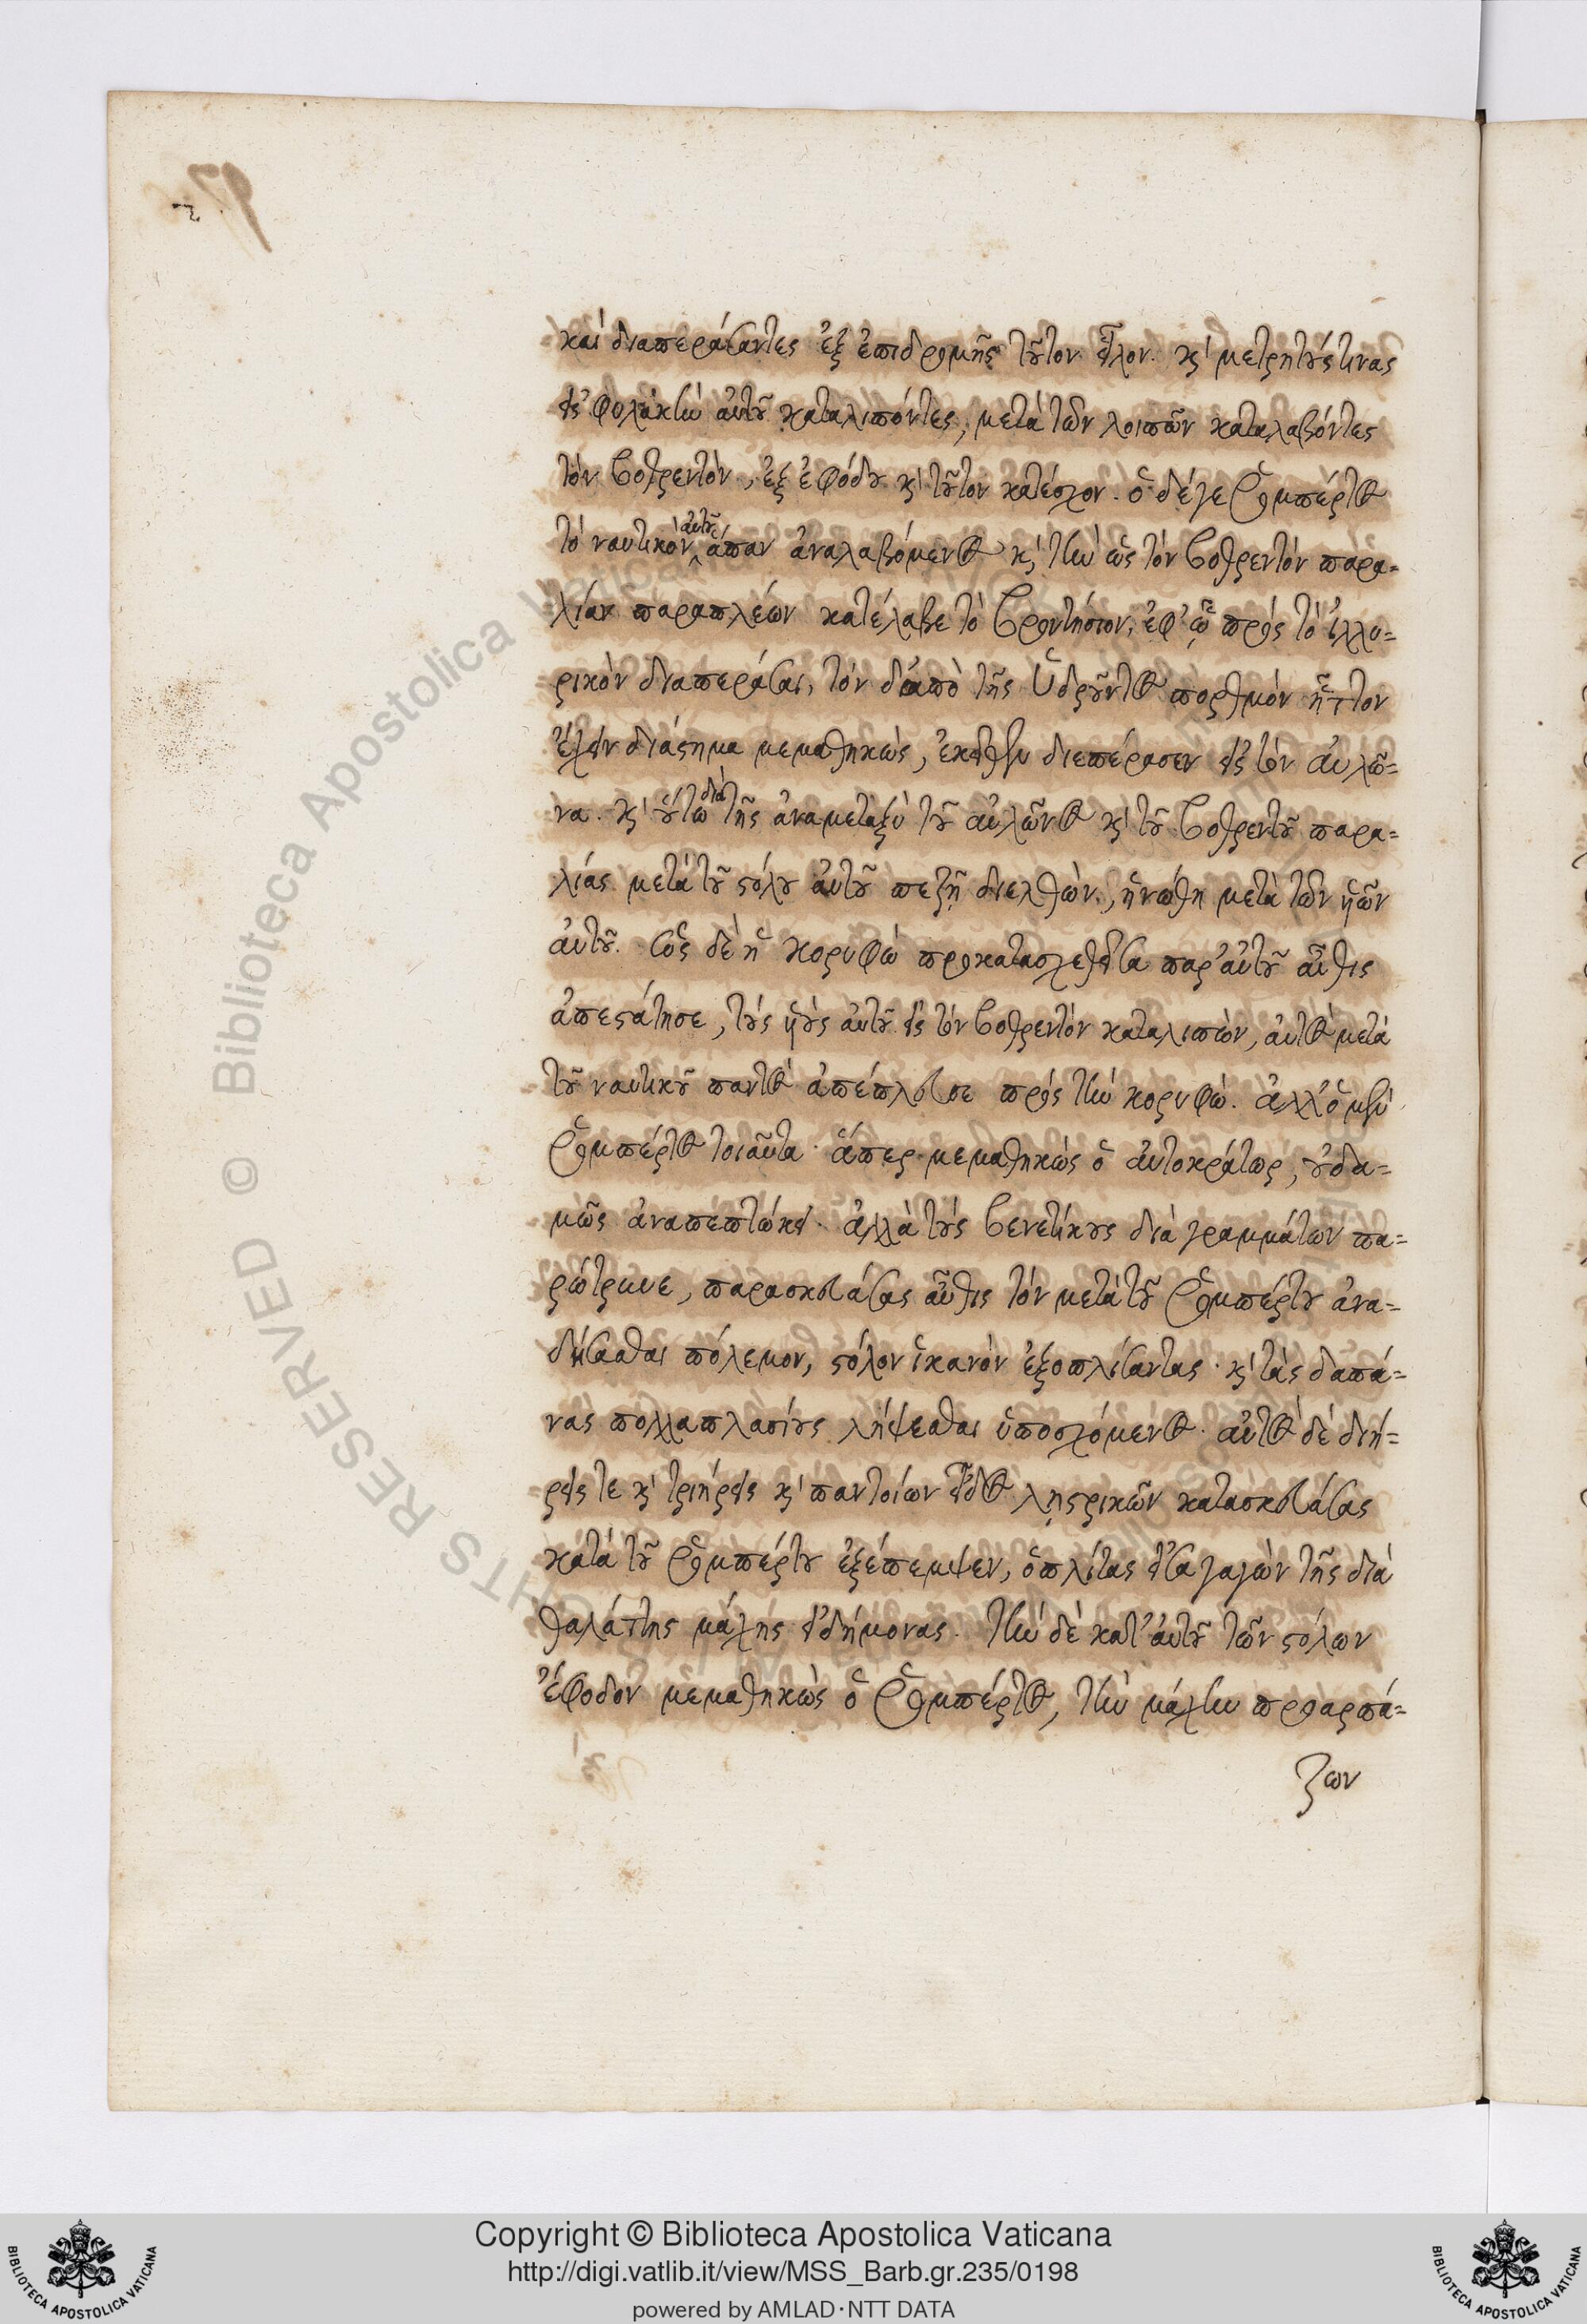 καὶ διαπεράσαντες ἐξ ἐπιδρομῆς τοῦτον εἷλον. καὶ μετρητούς τινας
εἰς φυλακὴν αὐτοῦ καταλιπόντες, μετὰ τῶν λοιπῶν καταλαβόντες
τὸν βοθρεντόν, ἐξ ἐφόδου καὶ τοῦτον κατέσχον. ὁ δέ γε ῥομπέρτος
τὸ ναυτικὸν αὐτοῦ ἅπαν ἀναλαβόμενος καὶ τὴν ὡς τὸν βοθρεντόν παρα=
λίαν παραπλέων κατέλαβε τὸ βροντήσιον, ἐφ' ᾧ πρὸς τὸ ἰλλυ=
ρικὸν διαπερᾶσαι, τὸν δ' ἀπὸ τῆς ὑδροῦντος πορθμὸν ἧττον
ἔχειν διάστημα μεμαθηκώς, ἐκεῖθεν διεπέρασεν εἰς τὸν αὐλῶ=
να. καὶ οὕτω διὰ τῆς ἀναμεταξὺ τοῦ αὐλῶνος καὶ τοῦ βοθρεντοῦ παρα=
λίας μετὰ τοῦ στόλου αὐτοῦ πεζῇ διελθών, ἡνώθη μετὰ τῶν ὑῶν
αὐτοῦ. ὡς δὲ ἡ κορυφὼ προκατασχεθεῖσα παρ' αὐτοῦ αὖθις
ἀπεστάτησε, τοὺς ὑοὺς αὐτοῦ εἰς τὸν βοθρεντόν καταλιπών, αὐτὸς μετὰ
τοῦ ναυτικοῦ παντὸς ἀπέπλευσε πρὸς τὴν κορυφώ. ἀλλ' ὁ μὲν
ῥομπέρτος τοιαῦτα. ἅπερ μεμαθηκὼς ὁ αὐτοκράτωρ, οὐδα=
μῶς ἀναπεπτώκει. ἀλλὰ τοὺς βενετίκους διὰ γραμμάτων πα=
ρώτρυνε, παρασκευάσας αὖθις τὸν μετὰ τοῦ ῥομπέρτου ἀνα=
δήσασθαι πόλεμον, στόλον ἱκανὸν ἐξοπλίσαντας. καὶ τὰς δαπά=
νας πολλαπλασίους λήψεσθαι ὑποσχόμενος. αὐτὸς δὲ διή=
ρεις τε καὶ τριήρεις καὶ παντοίων εἶδος λῃστρικῶν κατασκευάσας
κατὰ τοῦ ῥομπέρτου ἐξέπεμψεν, ὁπλίτας εἰσαγαγὼν τῆς διὰ
θαλάττης μάχης εἰδήμονας. τὴν δὲ κατ' αὐτοῦ τῶν στόλων
ἔφοδον μεμαθηκὼς ὁ ῥομπέρτος, τὴν μάχην προαρπά=
ζων
Copyright © Biblioteca Apostolica Vaticana
http://digi.vatlib.it/view/MSS_Barb.gr.235/0198
powered by AMLAD·NTT DATA
BIBLIOTECA APOSTOLICA VATICANA
BIBLIOTECA APOSTOLICA VATICANA